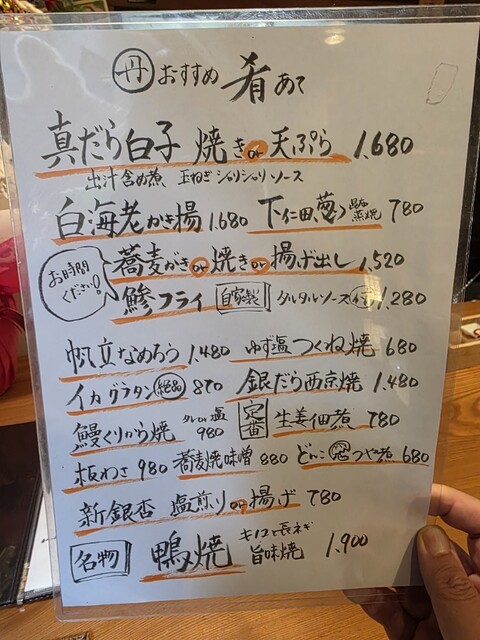 丹 おすすめ 肴 あて
真だら白子 焼き or 天ぷら 1,680
出汁含め煮 玉ねぎシャリシャリソース
白海老かき揚 1.680 下仁田葱 蒸焼 780
お時間ください! 蕎麦がき or 焼き or 揚げ出し 1,520
鯵フライ 自家製 タルタルソース 1,280
帆立なめろう 1.480 ゆず塩つくね焼 680
イカグラタン 絶品 870 銀だら西京焼 1,480
鰻くりから焼 タレ or 塩 980 定番 生姜佃煮 780
板わさ 980 蕎麦焼味噌 880 どんこ つや煮 680
新銀杏 塩煎り or 揚げ 780
名物 鴨焼 キノコと長ネギ 旨味焼 1,900